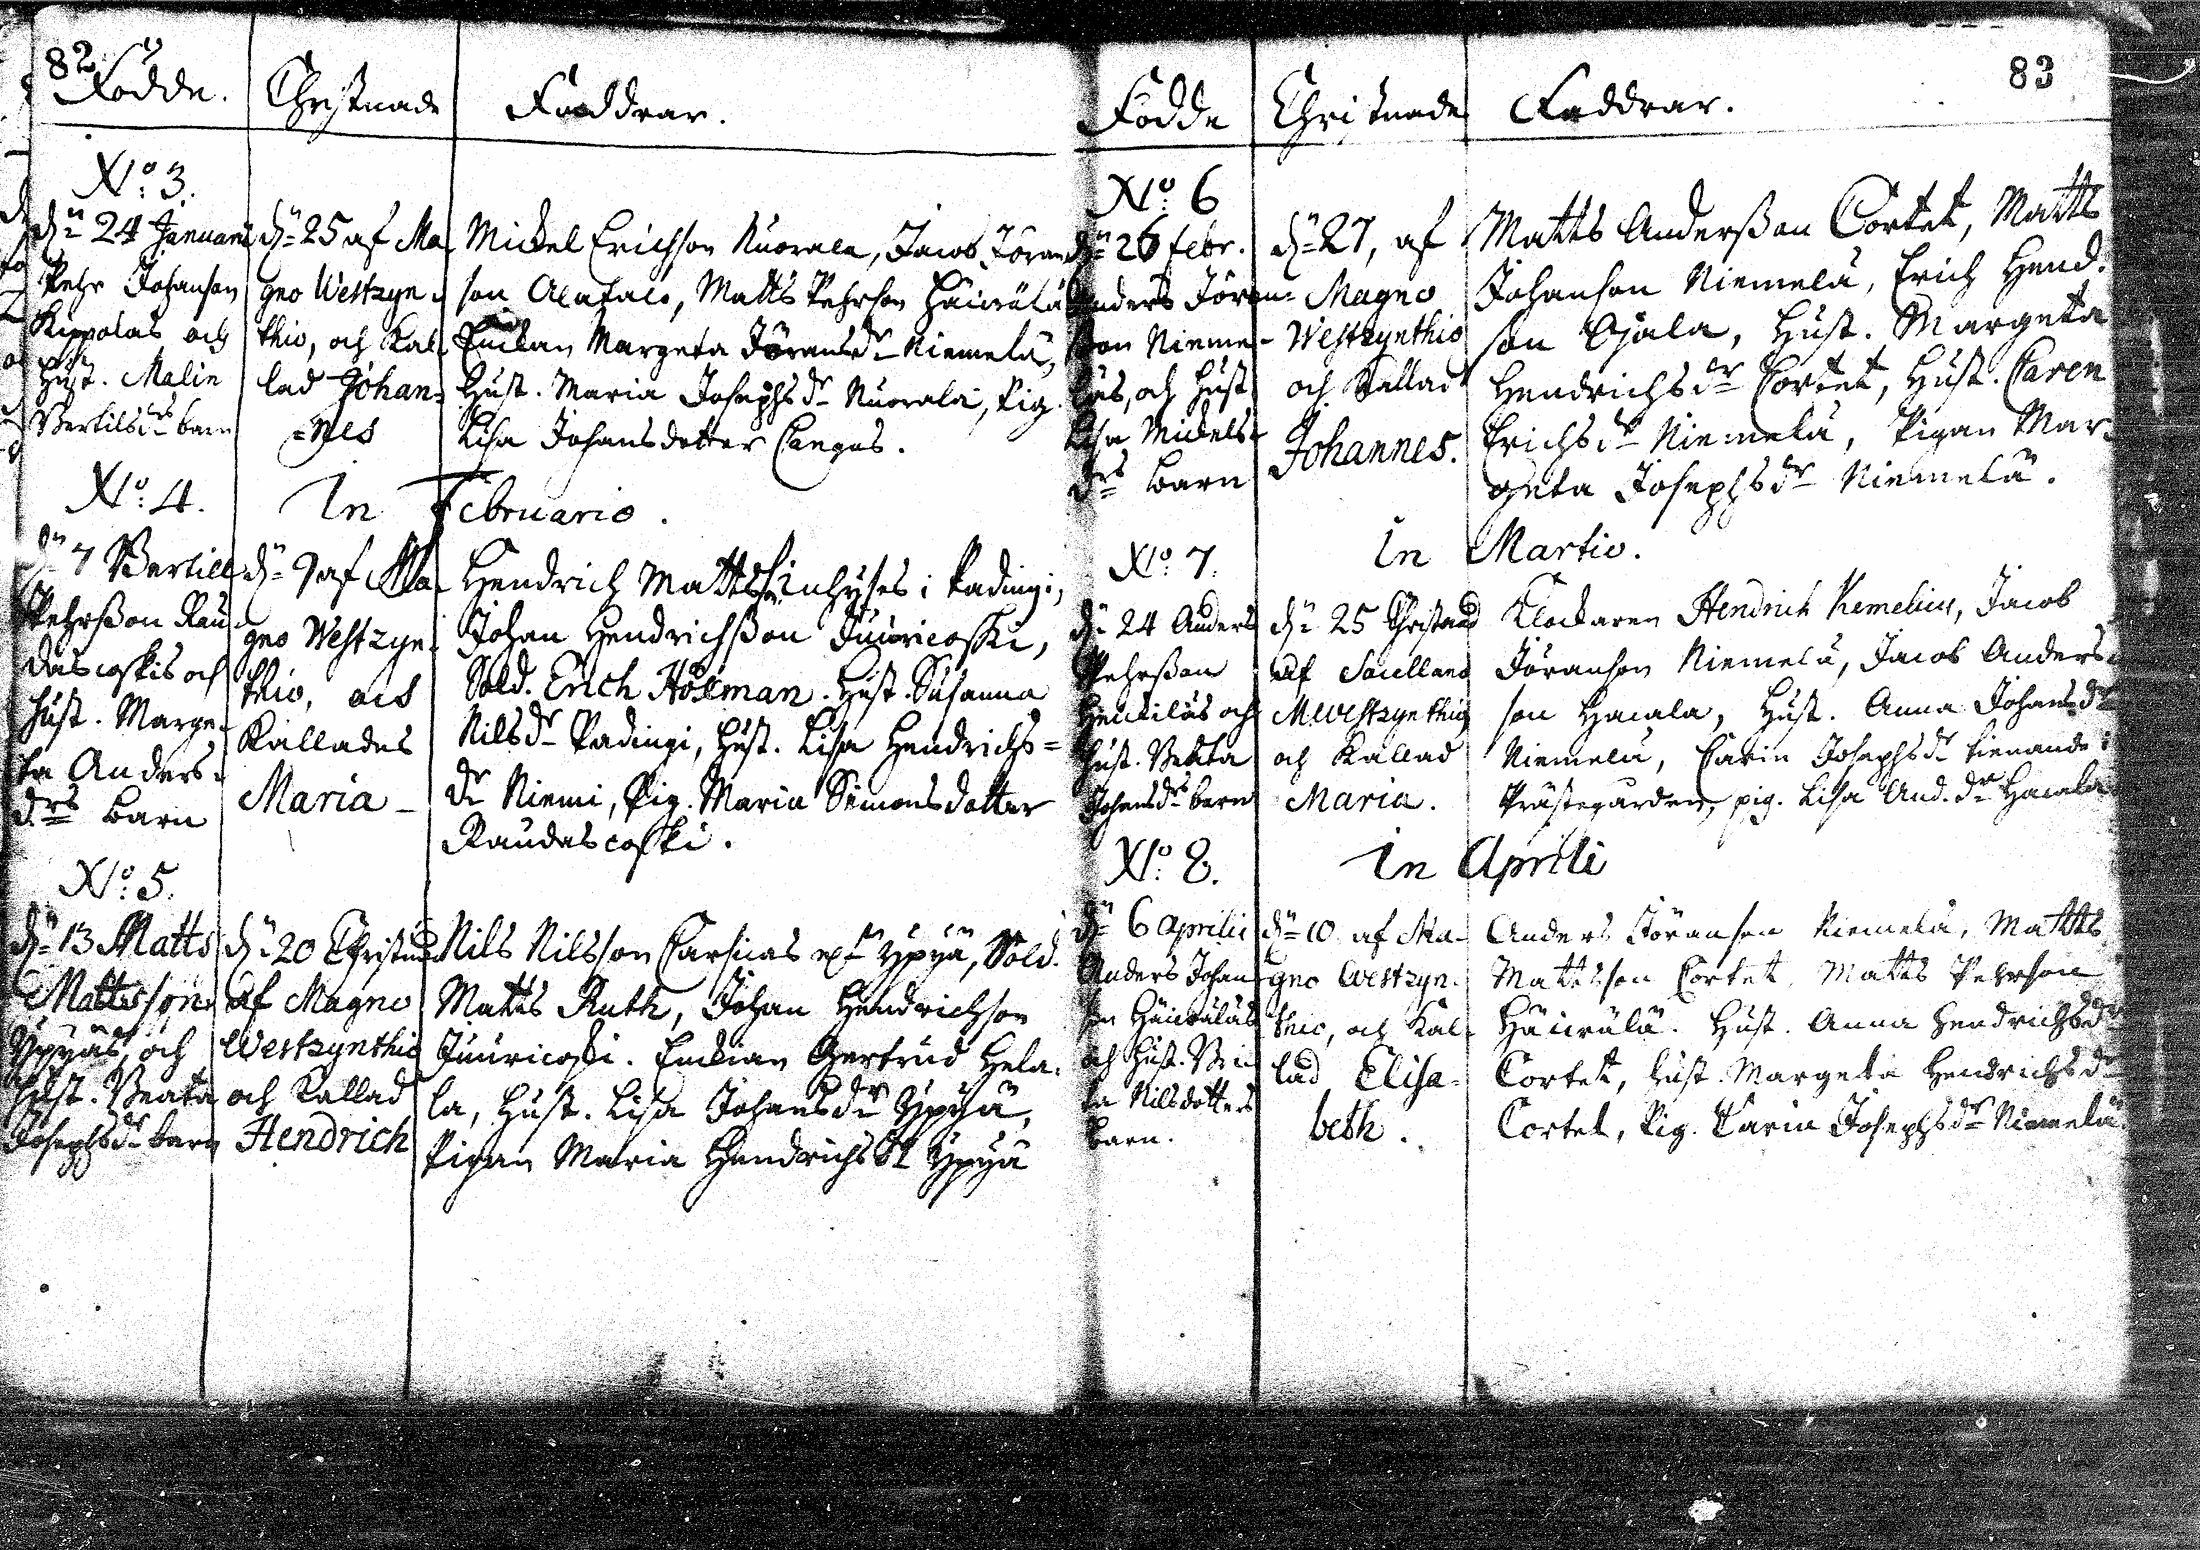 82.
Födde. Christnade Faddrar.
No: 3.
dn 24 Januarii
Pehr Johanson
Kippolas och
Hust. Malin
Bertilsdrs barn
dn 25 af Ma-
gno Westzyn-
thio, och Kal-
lad Johan-
=nes
Mickel Erichson Nuorala, Jacob Jöran
son Alatalo, Matts Pehrson Häivälä
Enckan Margeta Jöransdr Niemelä,
Hust. Maria Josephsdr Nuorala, Pig.
Lisa Johansdotter Cangas.
No: 4. In Februario.
dn 7 Bertill
Pehrßon Rau
dascoskis och
Hust. Marge-
ta Anders-
drs barn
dn 9 af Ma-
gno Westzyn-
thio, och
Kallades
Maria
Hendrich Matts inhyses i Padingi,
Johan Hendrichßon Juuricoski,
Sold. Erich Hölman. Hust. Susanna
Nilsdr Padingi, Hust. Lisa Hendrichs=
dr Niemi, Pig. Maria Simonsdotter
Raudascoski.
No: 5.
dn 13 Matts
Mattsson
Ypyäs, och
Hust. Beata
Josephsdr barn
dn 20 Christnad
af Magno
Westzynthio
och Kallad
Hendrich
Nils Nilsson Carsicas Ypyä, Sold.
Matts Ruth, Johan Hendrichson
Juuricoski. Enckan Gertrud Hela-
la, Hust. Lisa Johansdr Ypyä,
Pigan Maria Hendrichsdr Ypyä
83
Födde Christnade Faddrar.
No: 6
dn 26 febr.
Anders Jöran=
son Nieme-
läs, och Hust
Lisa Mickels-
drs barn
dn 27, af
Magno
Westzynthio
och Kallad
Johannes.
Matts Anderßon Cortet, Matts
Johanson Niemelä, Erich Hend.
son Ojala, Hust. Margeta
Hendrichsdr Cortet, Hust. Caren
Erichsdr Niemelä, Pigan Mar-
geta Josephsdr Niemelä.
No: 7. In Martio.
dn 24 Anders
Pehrßon
Hentiläs och
Hust. Beata
Johansdrs barn
dn 25 Christnad
af
MWestzynthio
och Kallad
Maria.
Klockaren Hendrich Kemelius, Jacob
Jöranson Niemelä, Jacob Anders-
son Hacala, Hust. Anna Johansdr
Niemelä, Carin Josephsdr tienande i
Prästegården, pig. Lisa And. dr Hacala
No: 8. In Aprili
dn 6 Aprilii
Anders Johan
son Häiväläs
och Hust. Bri
ta Nilsdotters
barn.
dn 10 af Ma-
gno Westzyn-
thio, och Kal-
lad Elisa-
beth.
Anders Jöranson Niemelä, Matts
Mattsson Cortet, Matts Pehrson
Häivälä. Hust. Anna Hendrichsdr
Cortet, Hust. Margeta Hendrichsdr
Cortet, Pig. Carin Josephsdr Niemelä